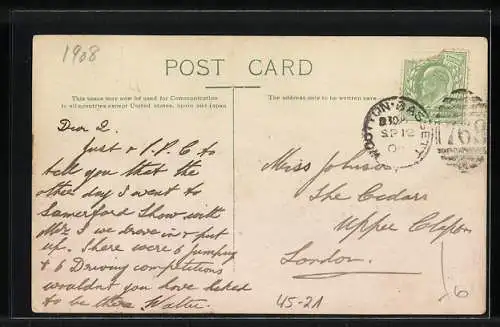 1908
POST CARD
This space may now be used for Communication
to all countries except United States, Spain and Japan
The address only to be written
Dear
Just a P.P.C to
tell you that the
other day I went to
Somerford Show with
we drove in & put
up. There were 6 jumping
& 6 Driving competitions
wouldn't you have liked
to be there
Miss Johnson
The Cedars
Upper Clapton
London.
WOOTTON·BASSETT
SP 12
768
45-21
6